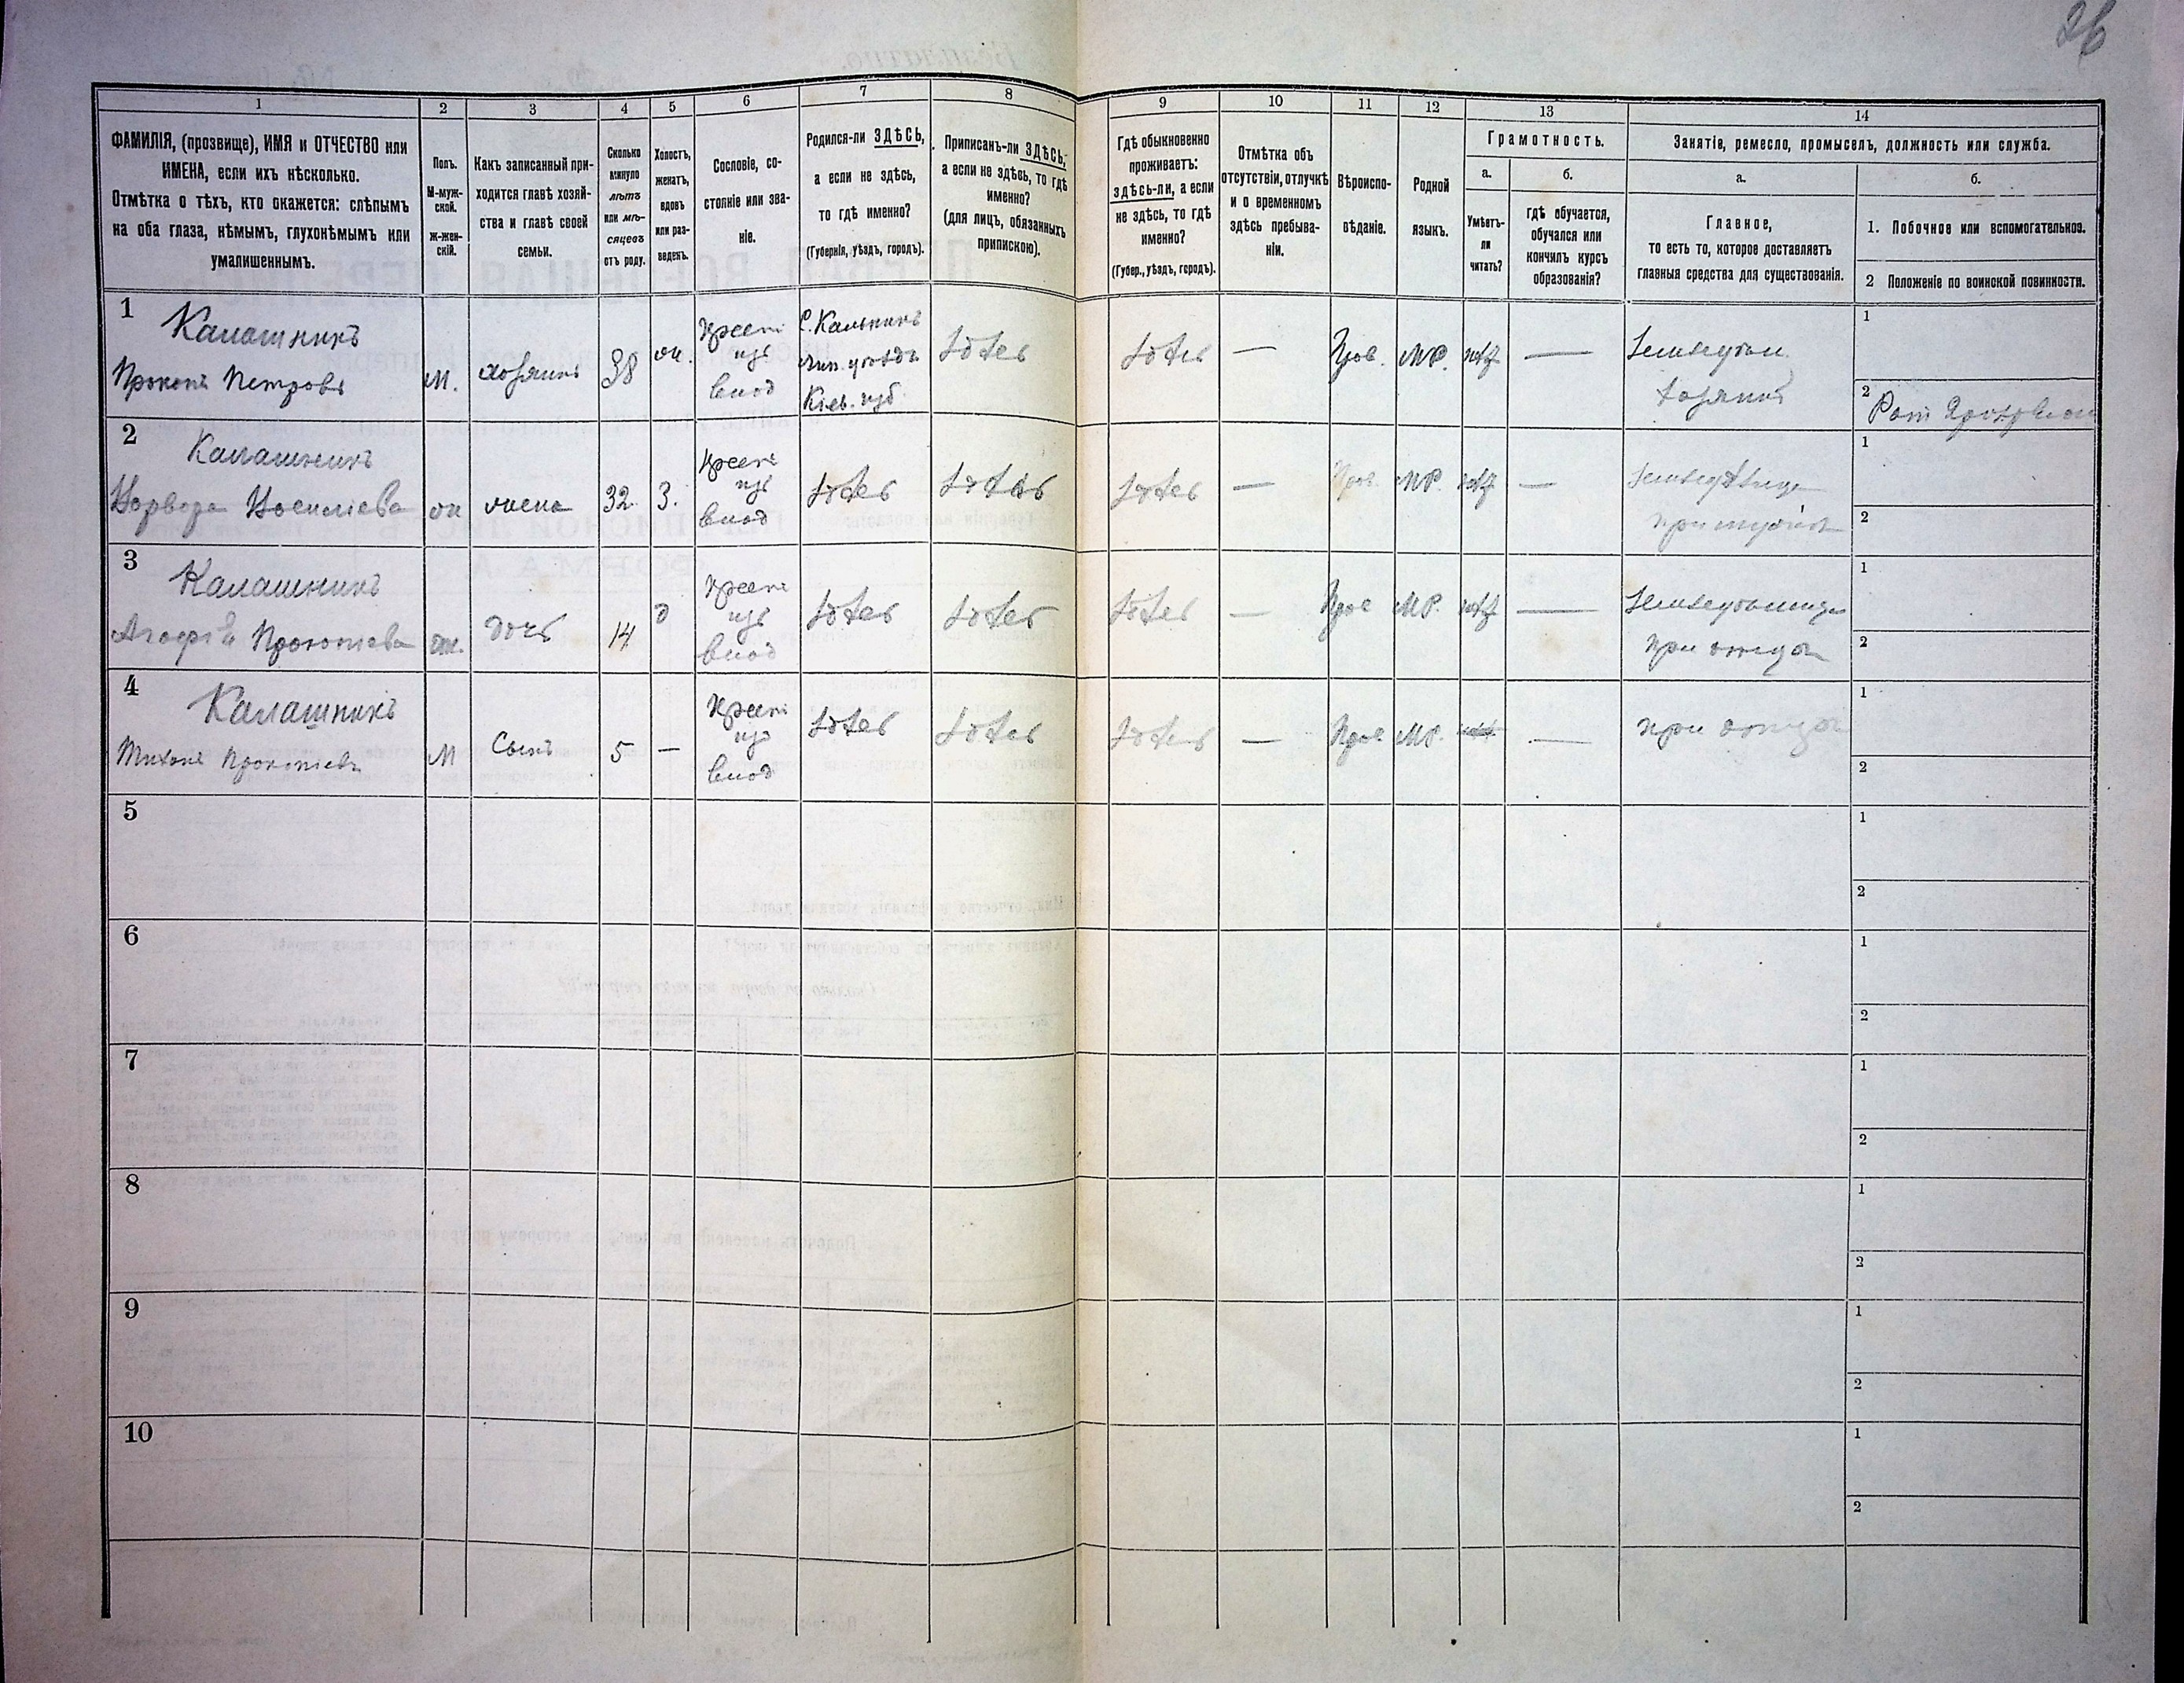 26
1
2
3
4
5
6
7
8
9
10
11
12
13
14
ФАМИЛІЯ, (прозвище), ИМЯ и ОТЧЕСТВО или
ИМЕНА, если ихъ нѣсколько.
Отмѣтка о тѣхъ, кто окажется: слѣпымъ
на оба глаза, нѣмымъ, глухонѣмымъ или
умалишеннымъ.
Полъ.
М-муж-
ской.
Ж-жен-
скій.
Какъ записанный при-
ходится главѣ хозяй-
ства и главѣ своей
семьи.
Сколько
минуло
лѣтъ
или мѣ-
сяцевъ
отъ роду.
Холостъ,
женатъ,
вдовъ
или раз-
веденъ.
Сословіе, со-
стояніе или зва-
ніе.
Родился-ли ЗДѢСЬ,
а если не здѣсь,
то гдѣ именно?
(Губернія, уѣздъ, городъ).
Приписанъ-ли ЗДѢСЬ,
а если не здѣсь, то гдѣ
именно?
(для лицъ, обязанныхъ
припискою).
Гдѣ обыкновенно
проживаетъ:
здѣсь-ли, а если
не здѣсь, то гдѣ
именно?
(Губер., уѣздъ, городъ).
Отмѣтка объ
отсутствіи, отлучкѣ
и о временномъ
здѣсь пребыва-
ніи.
Вѣроиспо-
вѣданіе.
Родной
языкъ.
Грамотность.
а.
Умѣетъ-
ли
читать?
б.
гдѣ обучается,
обучался или
кончилъ курсъ
образованія?
Занятіе, ремесло, промыселъ, должность или служба.
а.
Главное,
то есть то, которое доставляетъ
главныя средства для существованія.
б.
1. Побочное или вспомогательное.
2 Положеніе по воинской повинности.
1
Калашникъ
Прокопъ Петровъ
М.
хозяинъ
38
ж.
крест
изъ
влад
С. Кальникъ
Лип. уѣзда
Кіев. губ.
здѣсь
здѣсь
—
Прав.
МР.
нѣт
—
Земледѣл.
хозяинъ
1
2
2
Калашникъ
Варвара Василіева
ж
жена
32
З.
крест
изъ
влад
здѣсь
здѣсь
здѣсь
—
Прав.
МР.
нѣт
—
при мужѣ
1
2
3
Калашникъ
Прокопіева
ж.
дочь
14
д
крест
изъ
влад
здѣсь
здѣсь
здѣсь
—
Прав
МР.
нѣт
—
при отцѣ
1
2
4
Калашникъ
Тихонъ Прокопіевъ
М
Сынъ
5
—
крест
изъ
влад
здѣсь
здѣсь
здѣсь
—
Прав
МР.
—
при отцѣ
1
2
5
1
2
6
1
2
7
1
2
8
1
2
9
1
2
10
1
2